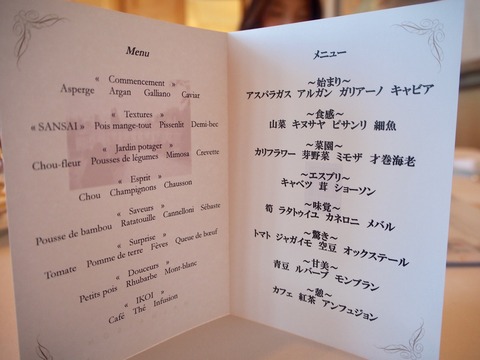 Menu
« Commencement »
Asperge Argan Galliano Caviar
« Textures »
« SANSAI » Pois mange-tout Pissenlit Demi-bec
« Jardin potager »
Chou-fleur Pousses de légumes Mimosa Crevette
« Esprit »
Chou Champignons Chausson
« Saveurs »
Pousse de bambou Ratatouille Cannelloni Sébaste
« Surprise »
Tomate Pomme de terre Fèves Queue de bœuf
« Douceurs »
Petits pois Rhubarbe Mont-blanc
« IKOI »
Café Thé Infusion
メニュー
～始まり～
アスパラガス アルガン ガリアーノ キャビア
～食感～
山菜 キヌサヤ ピサンリ 細魚
～菜園～
カリフラワー 芽野菜 ミモザ 才巻海老
～エスプリ～
キャベツ 茸 ショーソン
～味覚～
筍 ラタトゥイユ カネロニ メバル
～驚き～
トマト ジャガイモ 空豆 オックステール
～甘美～
青豆 ルバーブ モンブラン
～憩～
カフェ 紅茶 アンフュジョン